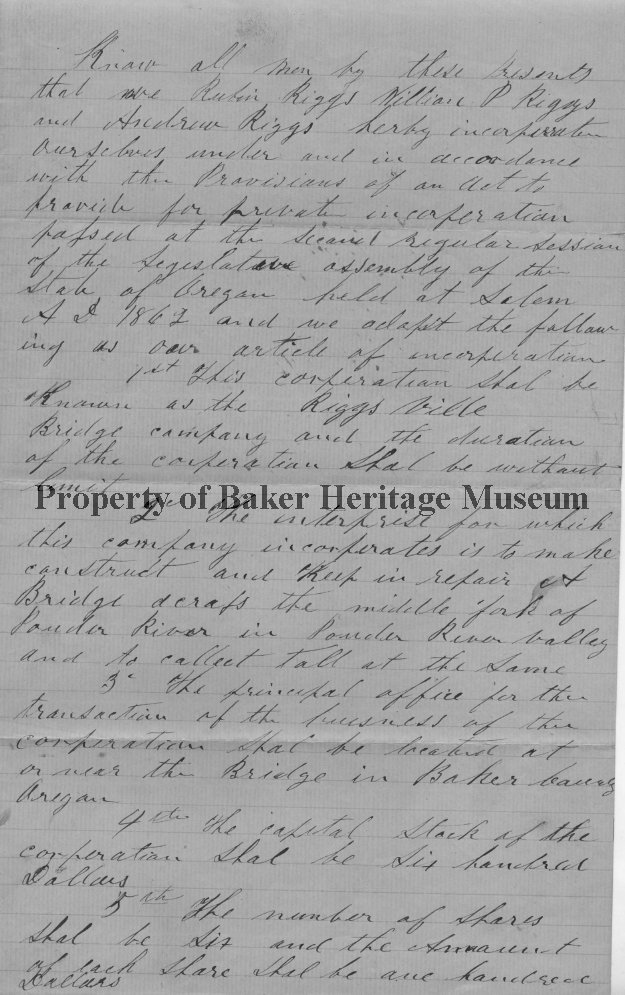 Know all men by these Presents
that we Rubin Riggs William P Riggs
and Andrew Riggs herby incorperate
ourselves under and in accordance
with the Provisians of an Act to
provide for private incorperation
passed at the second regular session
of the Legislative assembly of the
State of Oregan held at Salem
A D 1862 and we adopt the follow
ing as our article of incorperation
1st This corperation shal be
Known as the Riggs Ville
Bridge company and the duration
of the corperation Shal be without
limit
Property of Baker Heritage Museum
2d The interprise for which
this company incorperates is to make
construct and Keep in repair A
Bridge across the middle fork of
Pouder River in Pouder River valley
and to collect Tall at the Same
3d The principal office for the
transaction of the buisness of the
corperation shal be located at
or near the Bridge in Baker County
Oregan
4th The capital Stock of the
corperation shal be Six hundred
Dollars
5th The number of shares
shal be Six and the Amount
of each share shal be one hundred
Dollars